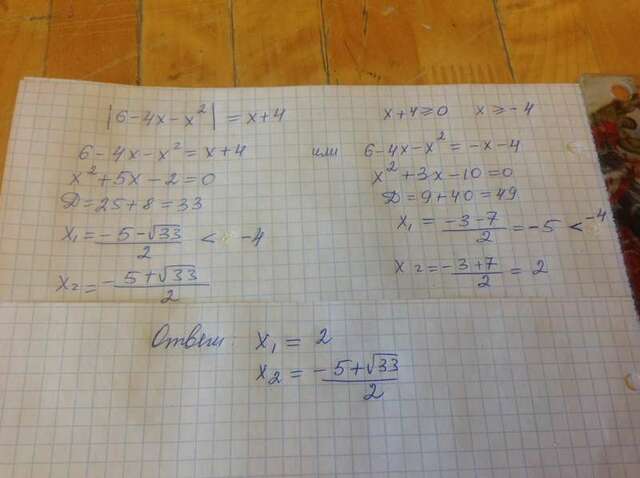 |6-4x-x²| = x+4    x+4≥0    x≥-4
6-4x-x² = x+4    или    6-4x-x² = -x-4
x²+5x-2=0
D=25+8=33
x₁ = (-5-√33)/2 < -4
x₂ = (-5+√33)/2
x²+3x-10=0
D=9+40=49
x₁ = (-3-7)/2 = -5 < -4
x₂ = (-3+7)/2 = 2
Ответ: x₁ = 2
x₂ = (-5+√33)/2